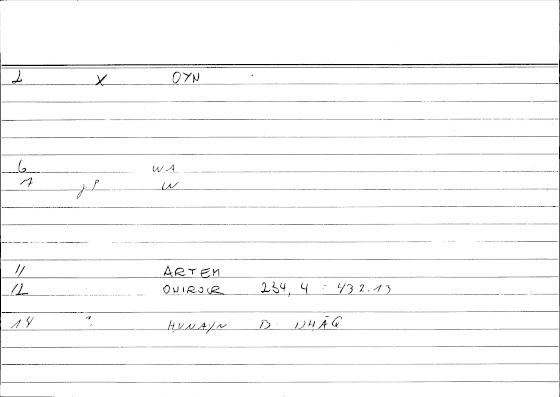 2 X OYN
6 WA
7 W
11 ARTEM
12 234, 4 = 432.13
14 HUNAYN B ISHĀQ